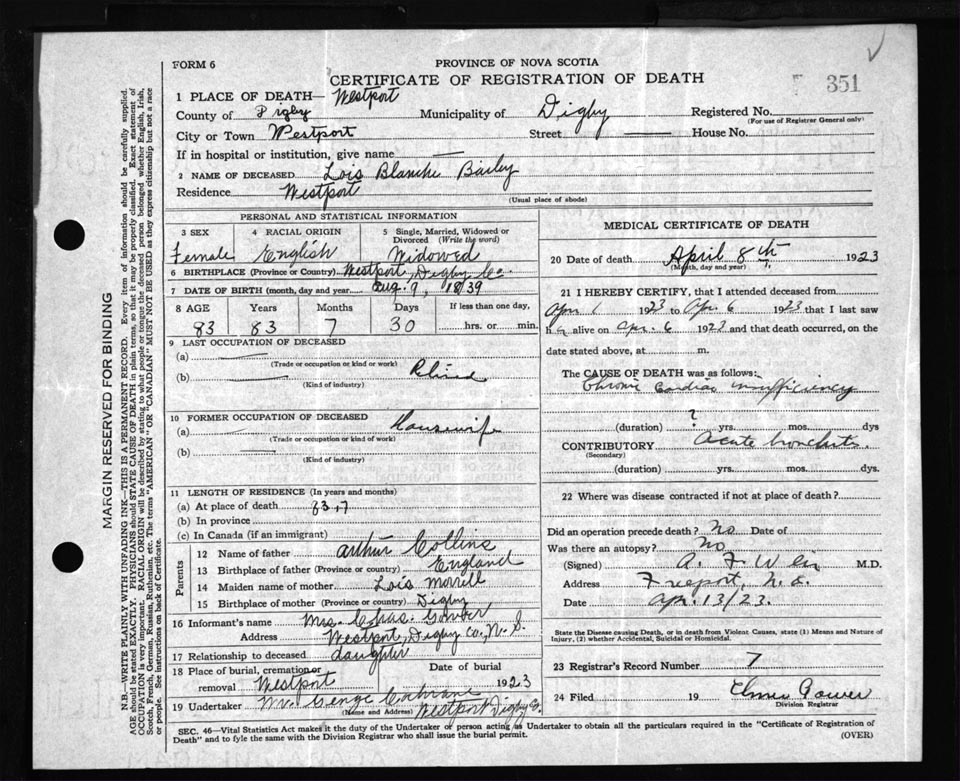 FORM 6
PROVINCE OF NOVA SCOTIA
CERTIFICATE OF REGISTRATION OF DEATH
351
1 PLACE OF DEATH— Westport
County of Digby Municipality of Digby Registered No.
(For use of Registrar General only)
City or Town Westport Street — House No.
If in hospital or institution, give name —
2 NAME OF DECEASED Lois Blanche Bailey
Residence Westport
(Usual place of abode)
PERSONAL AND STATISTICAL INFORMATION
3 SEX 4 RACIAL ORIGIN 5 Single, Married, Widowed or Divorced (Write the word)
Female English Widowed
6 BIRTHPLACE (Province or Country) Westport, Digby Co.
7 DATE OF BIRTH (month, day and year) Aug. 9, 1839
8 AGE Years Months Days If less than one day,
83 83 7 30 hrs. or min.
9 LAST OCCUPATION OF DECEASED
(a) —
(Trade or occupation or kind of work)
(b) — Retired
(Kind of industry)
10 FORMER OCCUPATION OF DECEASED
(a) — Housewife
(Trade or occupation or kind of work)
(b) —
(Kind of industry)
11 LENGTH OF RESIDENCE (In years and months)
(a) At place of death 83, 7
(b) In province
(c) In Canada (if an immigrant)
Parents
12 Name of father Arthur Collins
13 Birthplace of father (Province or country) England
14 Maiden name of mother Lois Morrell
15 Birthplace of mother (Province or country) Digby
16 Informant's name Mrs. Chas. Gower
Address Westport, Digby Co., N. S.
17 Relationship to deceased daughter
18 Place of burial, cremation or removal Westport Date of burial 1923
19 Undertaker Mr. George Cochrane Westport Digby Co.
(Name and Address)
MEDICAL CERTIFICATE OF DEATH
20 Date of death April 8th 1923
(Month, day and year)
21 I HEREBY CERTIFY, that I attended deceased from
Apr 1 1923 to Apr. 6 1923 that I last saw
her alive on Apr. 6 1923 and that death occurred, on the
date stated above, at m.
The CAUSE OF DEATH was as follows:
Chronic Cardiac insufficiency
(duration) ? yrs. mos. dys
CONTRIBUTORY Acute bronchitis.
(Secondary)
(duration) yrs. mos. dys.
22 Where was disease contracted if not at place of death?
Did an operation precede death? No Date of
Was there an autopsy? No
(Signed) A. F. M.D.
Address Freeport, N. S.
Date Apr. 13/23.
State the Disease causing Death, or in death from Violent Causes, state (1) Means and Nature of
Injury, (2) whether Accidental, Suicidal or Homicidal.
23 Registrar's Record Number 7
24 Filed 19 Gower
Division Registrar
SEC. 46—Vital Statistics Act makes it the duty of the Undertaker or person acting as Undertaker to obtain all the particulars required in the "Certificate of Registration of
Death" and to fyle the same with the Division Registrar who shall issue the burial permit. (OVER)
MARGIN RESERVED FOR BINDING
N.B.—WRITE PLAINLY WITH UNFADING INK—THIS IS A PERMANENT RECORD. Every item of information should be carefully supplied.
AGE should be stated EXACTLY. PHYSICIANS should STATE CAUSE OF DEATH in plain terms, so that it may be properly classified. Exact statement of
OCCUPATION is very important. RACIAL ORIGIN will be described by stating to what people or tongue the deceased person belonged whether English, Irish,
Scotch, French, German, Russian, Ruthenian, etc. The terms "AMERICAN" OR "CANADIAN" MUST NOT BE USED as they express citizenship but not a race
or people. See instructions on back of Certificate.